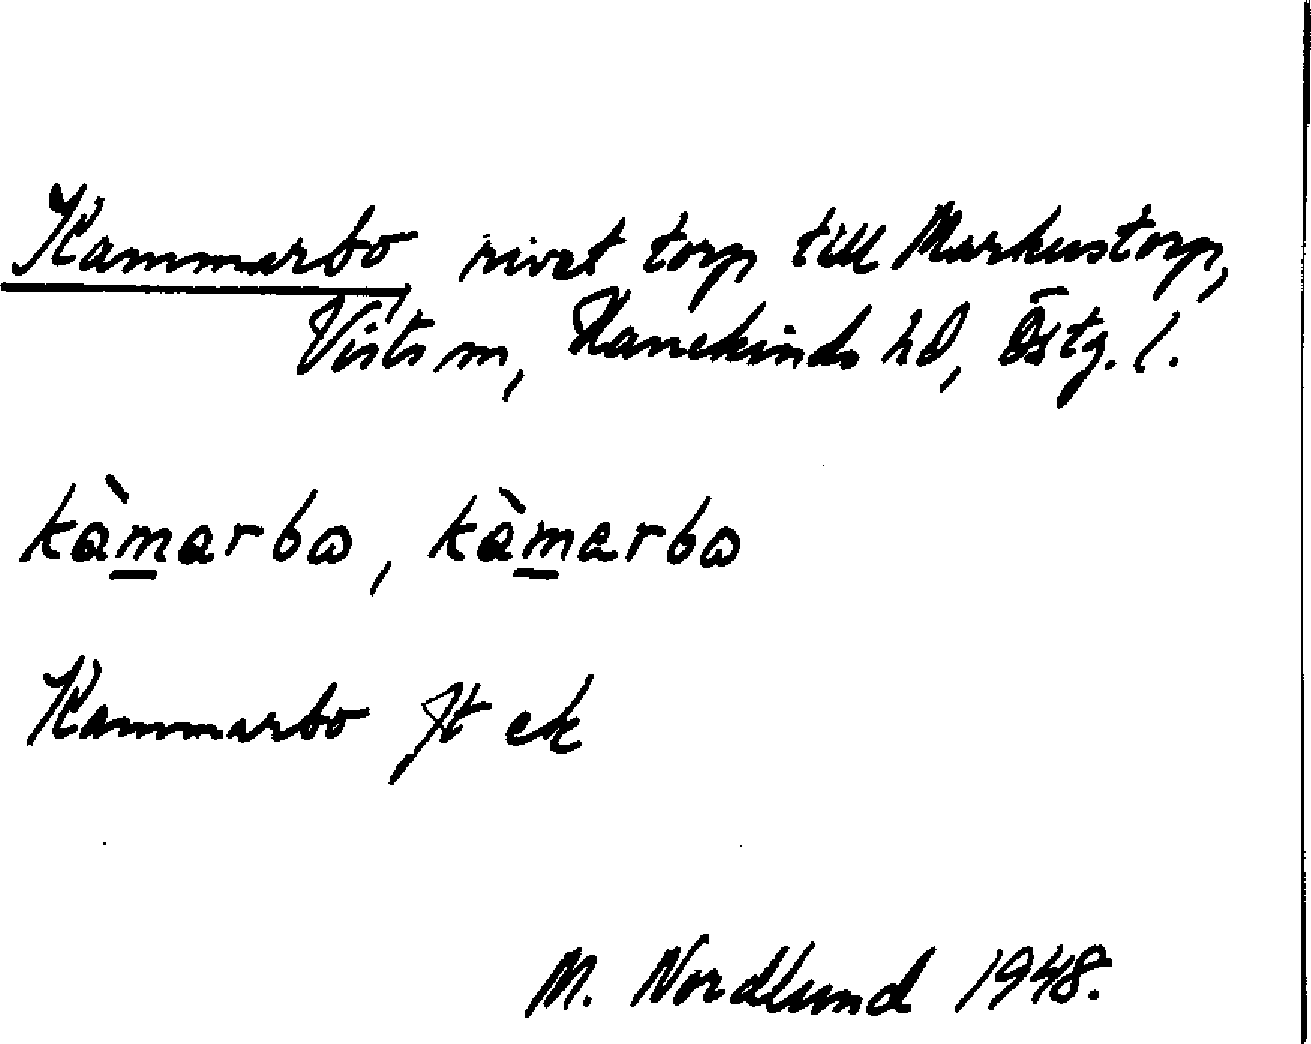 Kammarbo rivet torp till Markustorp,
Vists sn, Hanekinds hd, Östg. l.
kàmarbω, kàmarbω
Kammarbo Jt ek
M. Nordlund 1948.